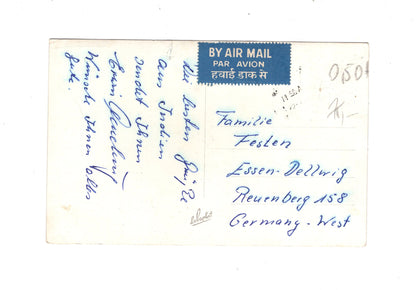 BY AIR MAIL
PAR AVION
हवाई डाक से
0,50
Die besten Grüße
aus Indien
sendet Ihnen
Erwin
Wünsche Ihnen alles
gute.
Familie
Festen
Essen-Dellwig
Reuenberg 158
Germany-West